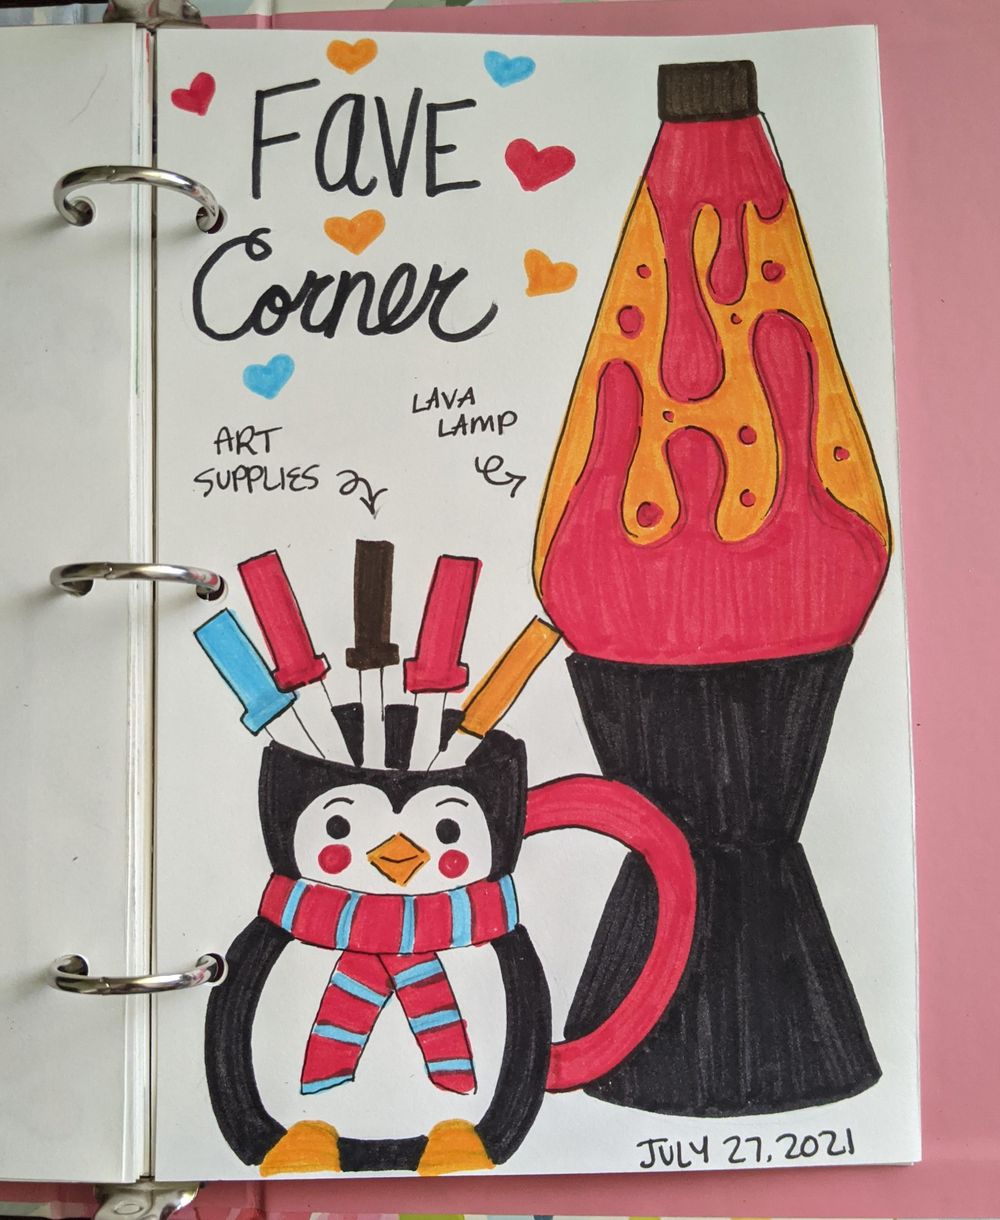 FaVE
Corner
ART
SUPPLIES
LAVA
LAMP
JULY 27, 2021